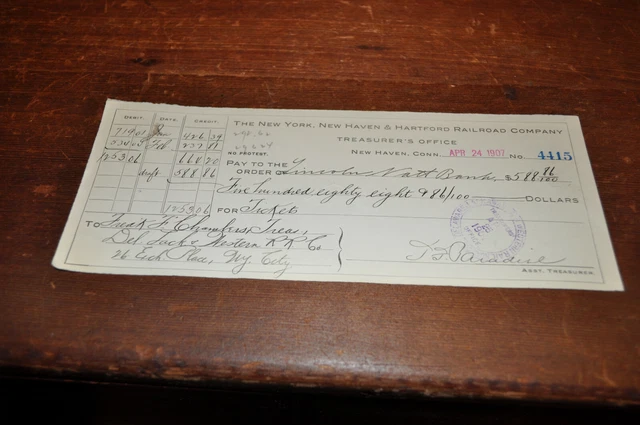 DEBIT. DATE. CREDIT.
719 01 Jan 426 39
534 05 Feb 237 81
1253 06 664 20
draft 588 86
1253 06
THE NEW YORK, NEW HAVEN & HARTFORD RAILROAD COMPANY
TREASURER'S OFFICE
NEW HAVEN, CONN. APR 24 1907 No. 4415
NO PROTEST.
PAY TO THE
ORDER OF Lincoln Natl Bank, $588 86/100
Five hundred eighty eight & 86/100 DOLLARS
FOR Tickets
TO Fredk F. Chambers, Treas.,
Del. Lack & Western R.R. Co
26 Exch Place, Ny. City
Paradise
ASST. TREASURER.